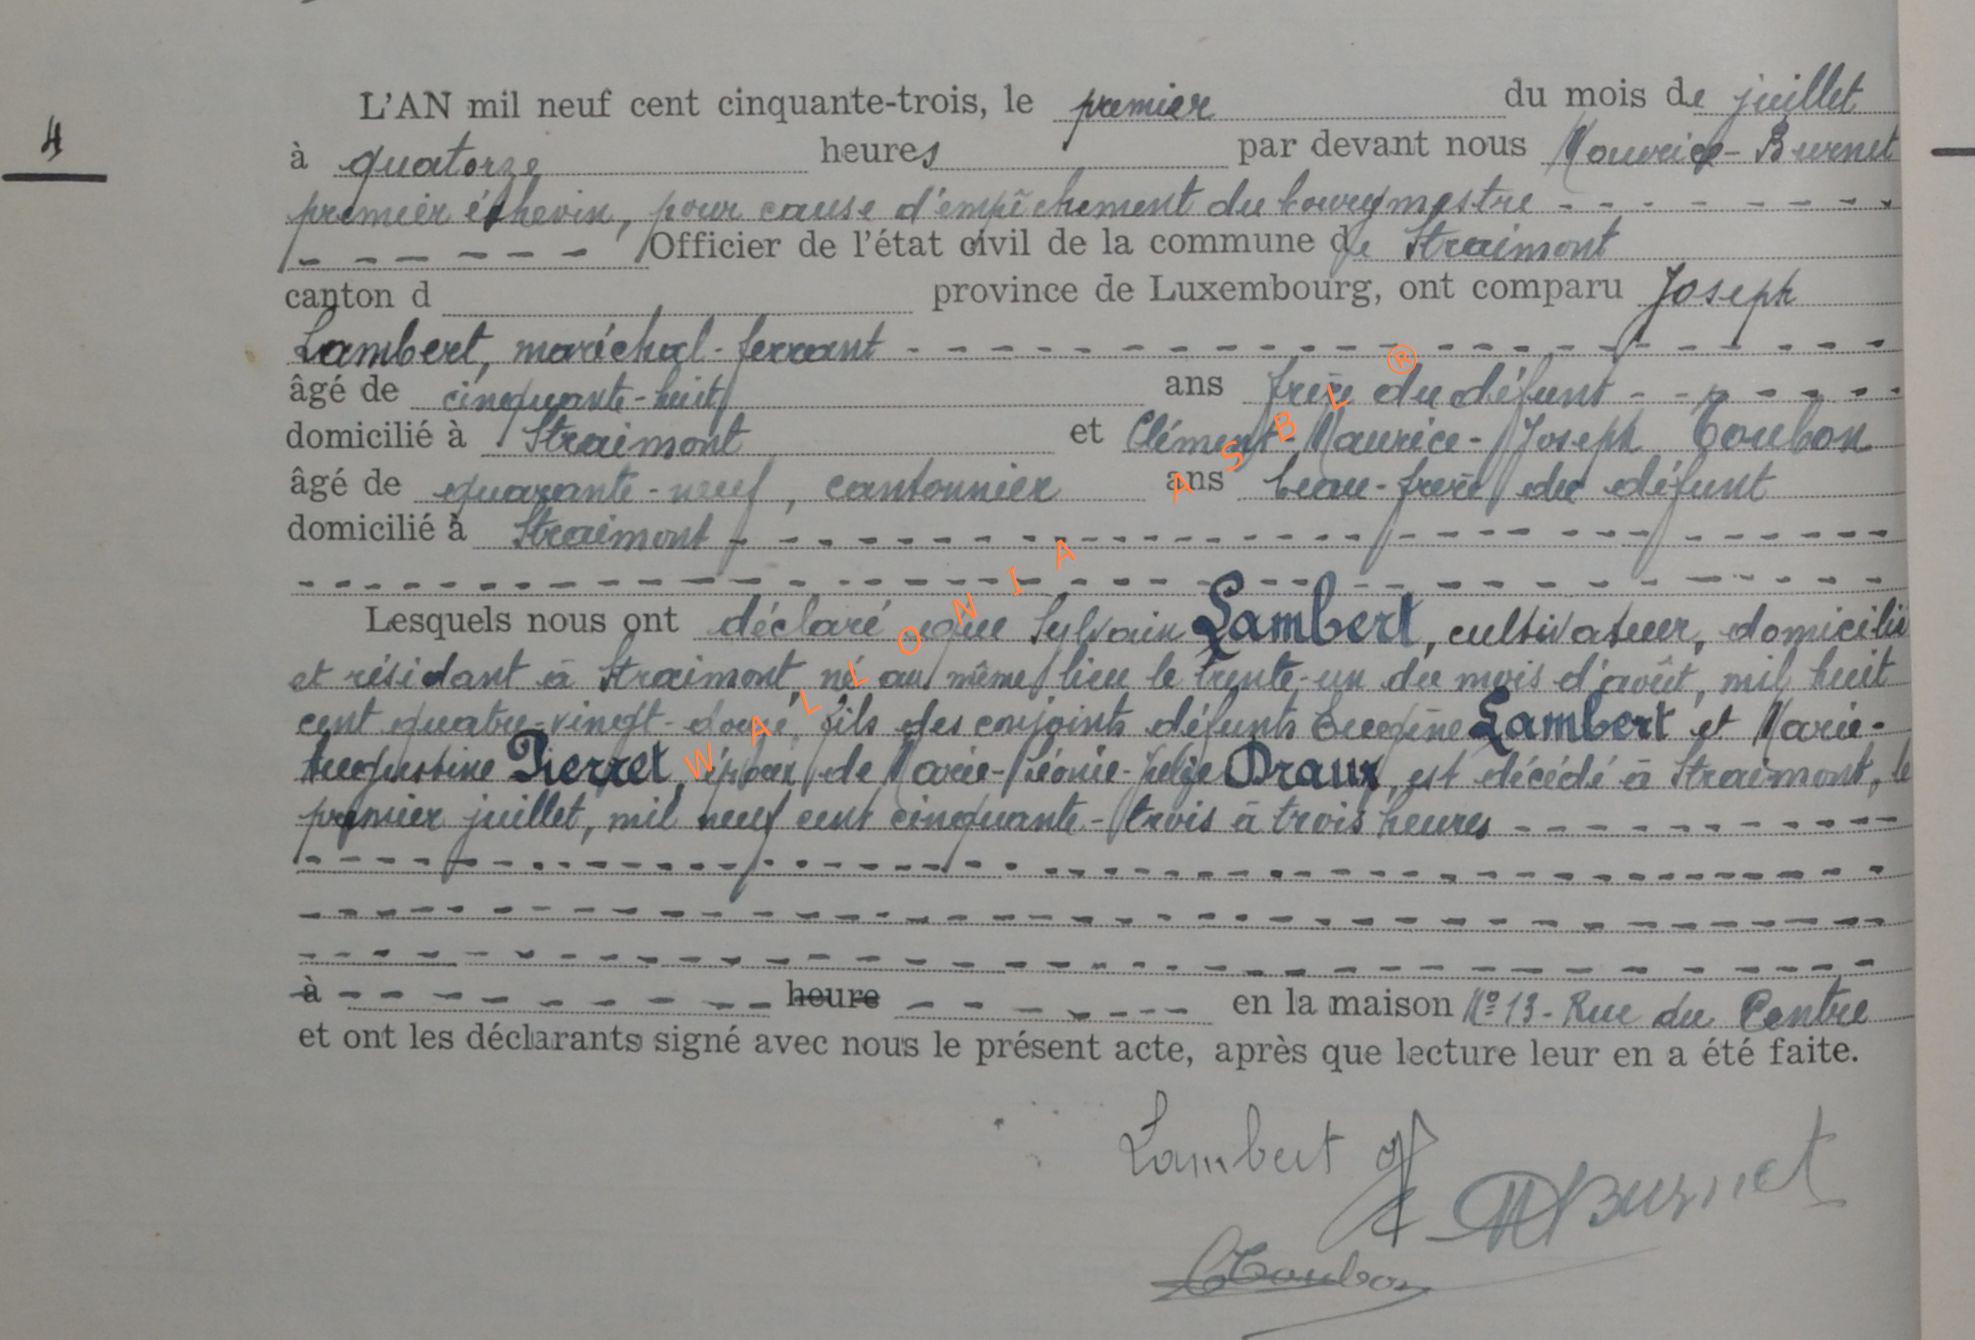 4
L'AN mil neuf cent cinquante-trois, le premier du mois de juillet
à quatorze heures par devant nous Maurice - Burnet
premier échevin, pour cause d'empêchement du bourgmestre - - - - - - - -
- - - - - - Officier de l'état civil de la commune de Straimont
canton d province de Luxembourg, ont comparu Joseph
Lambert, maréchal-ferrant - - - - - - - - - - - - - - - - - - - -
âgé de cinquante-huit ans frère du défunt - - - - - - -
domicilié à Straimont et Clément-Maurice-Joseph Toubon
âgé de quarante-neuf, cantonnier ans beau-frère du défunt
domicilié à Straimont - - - - - - - - - - - - - - - - - - - - - - - -
Lesquels nous ont déclaré que Sylvain Lambert, cultivateur, domicilié
et résidant à Straimont, né au même lieu le trente-un du mois d'août, mil huit
cent quatre-vingt-douze, fils des conjoints défunts Eugène Lambert et Marie-
Augustine Pierret, époux de Marie-Léonie- Draux, est décédé à Straimont, le
premier juillet, mil neuf cent cinquante-trois à trois heures - - - - - - - - - -
à - - - - - - - - - - heure - - - - - - - en la maison N° 13 - Rue du Centre
et ont les déclarants signé avec nous le présent acte, après que lecture leur en a été faite.
Lambert J
MBurnet
CToubon
WALLONIA ASBL ®